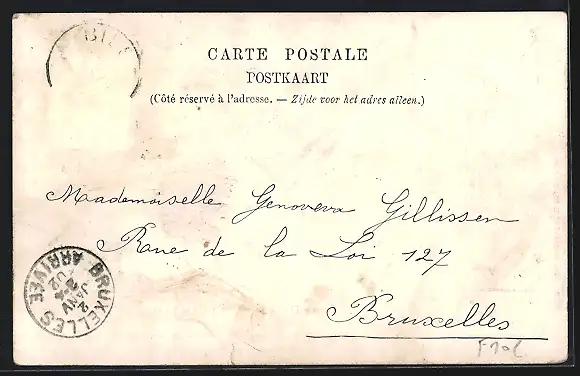 CARTE POSTALE
POSTKAART
(Côté réservé à l'adresse. — Zijde voor het adres alleen.)
Mademoiselle Genoveva Gillissen
Rue de la Loi 127
Bruxelles
BRUXELLES
ARRIVÉE
2
JANV